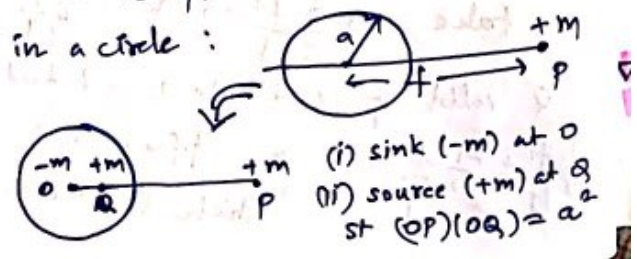 in a circle :
a
+m
f
P
-m +m
O
Q
+m
P
(i) sink (-m) at O
(ii) source (+m) at Q
st (OP)(OQ) = a²